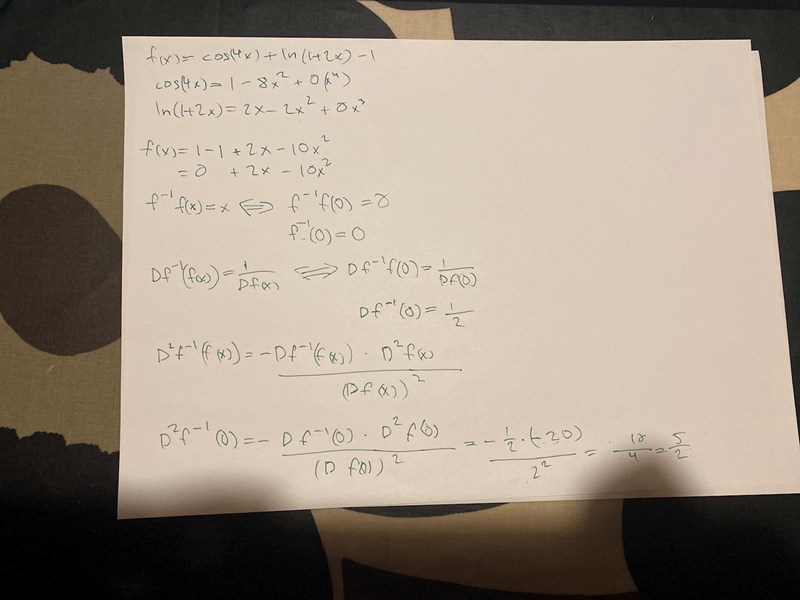 f(x) = cos(4x) + ln(1+2x) - 1
cos(4x) = 1 - 8x² + O(x⁴)
ln(1+2x) = 2x - 2x² + Ox³
f(x) = 1 - 1 + 2x - 10x²
= 0 + 2x - 10x²
f⁻¹f(x) = x ⟺ f⁻¹f(0) = 0
f⁻¹(0) = 0
Df⁻¹(f(x)) = 1/Df(x) ⟺ Df⁻¹f(0) = 1/Df(0)
Df⁻¹(0) = 1/2
D²f⁻¹(f(x)) = -Df⁻¹(f(x)) · D²f(x) / (Df(x))²
D²f⁻¹(0) = - Df⁻¹(0) · D²f(0) / (Df(0))² = -1/2·(-20) / 2² = 10/4 = 5/2